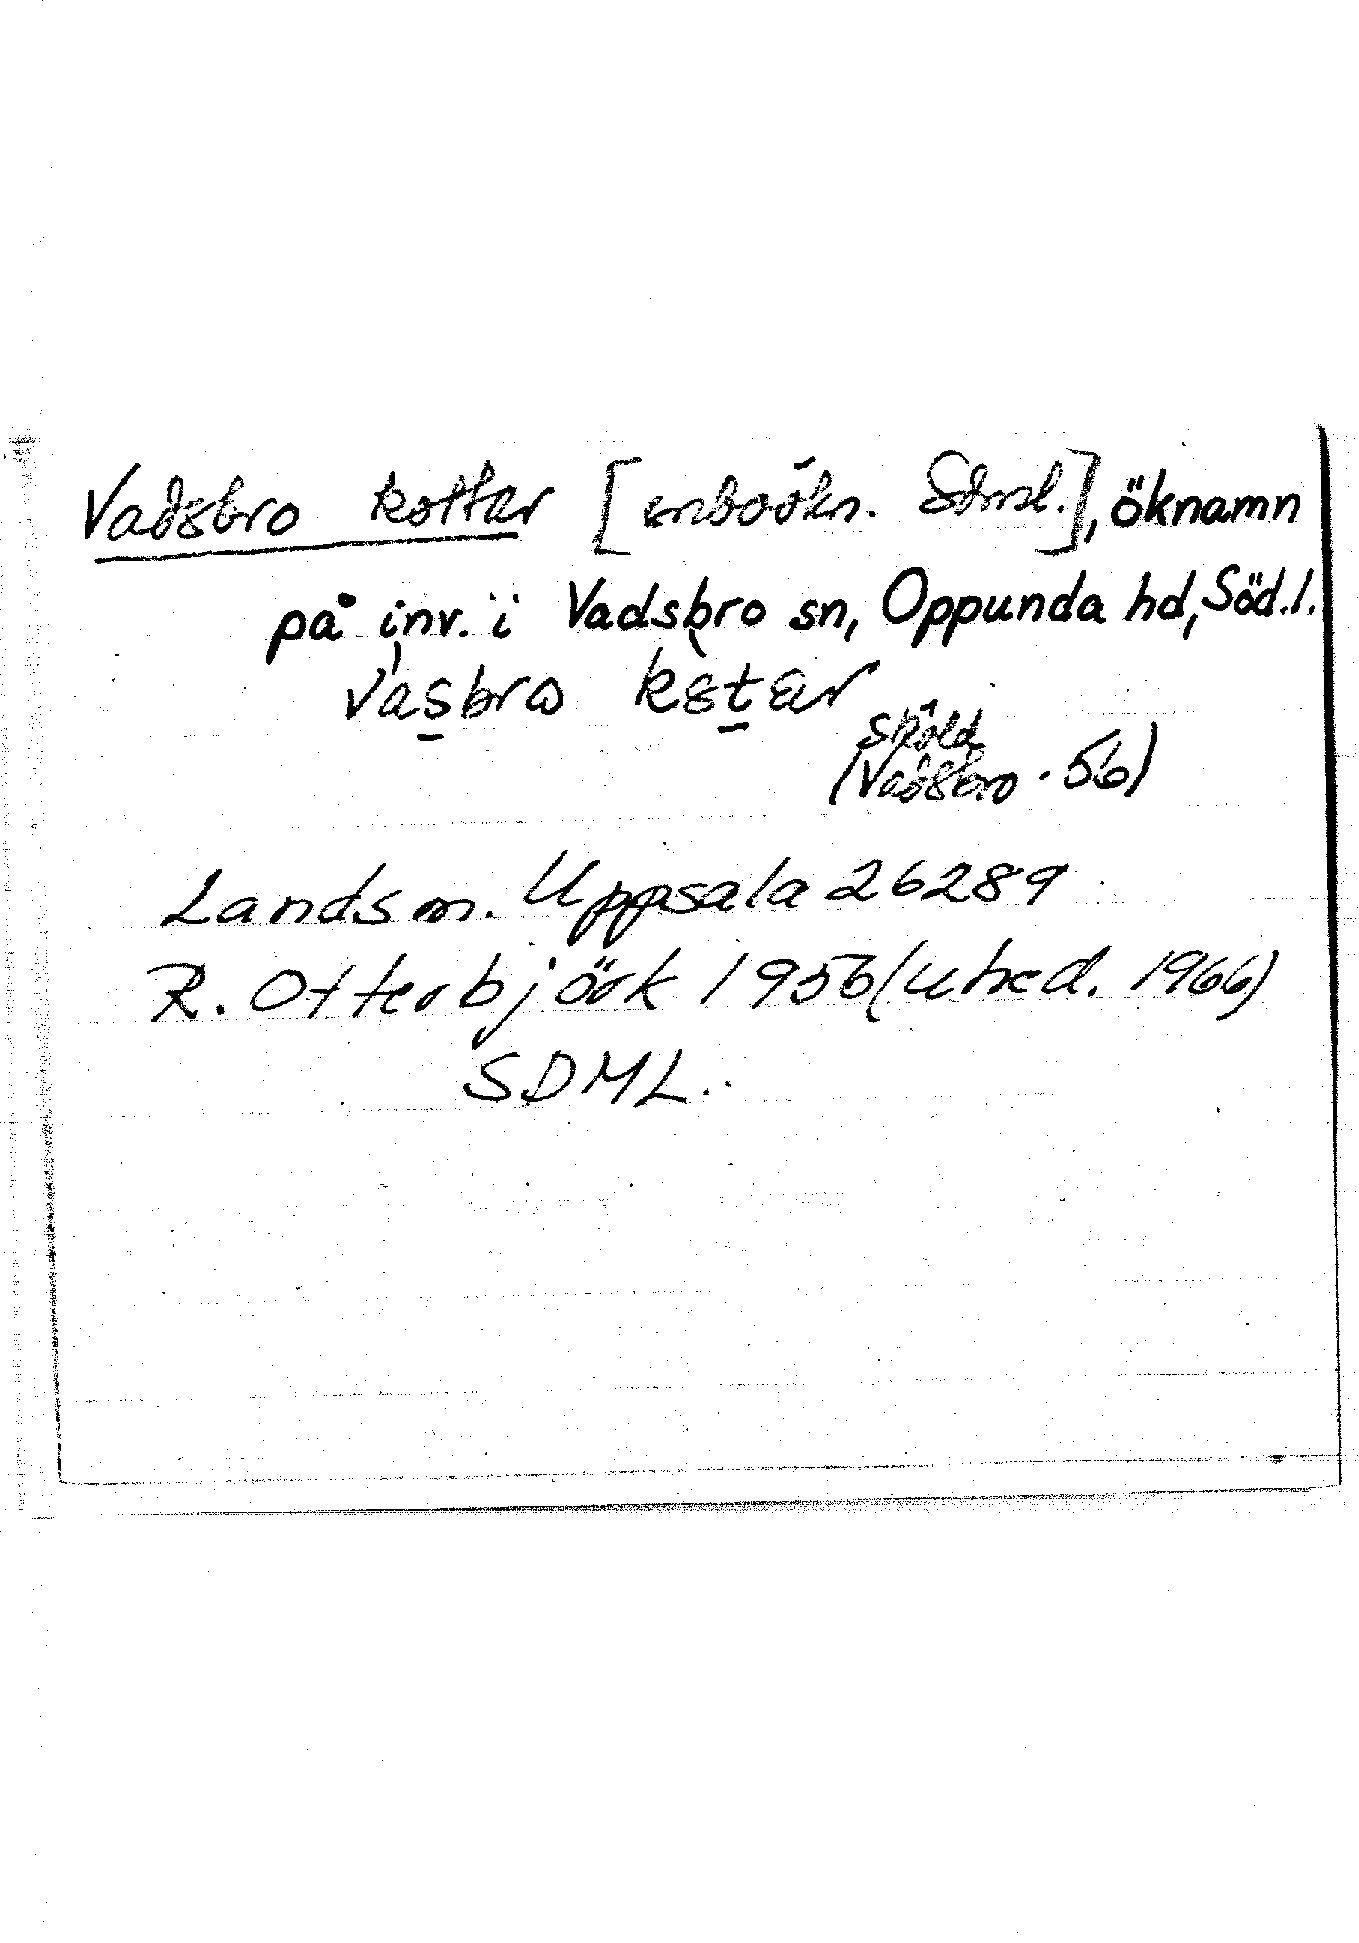 Vadsbro kottar [snboökn. Sdml.], öknamn
på inv. i Vadsbro sn, Oppunda hd, Söd.l.
vasbro kɛtar
Sköld
(Vadsbro. 56)
Landsm. Uppsala 26289
R. Otterbjörk 1956 (utred. 1966)
SDML.